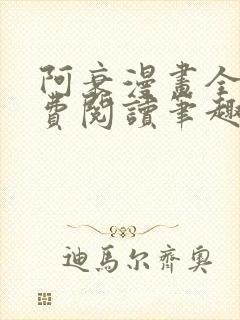 阿衰漫畫全
費閱讀筆趣
迪馬尔齊奧